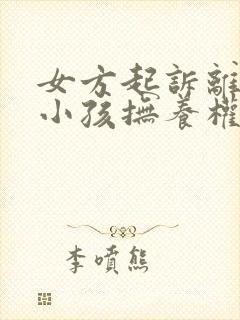 女方起訴離
小孩撫養權
李噴熊